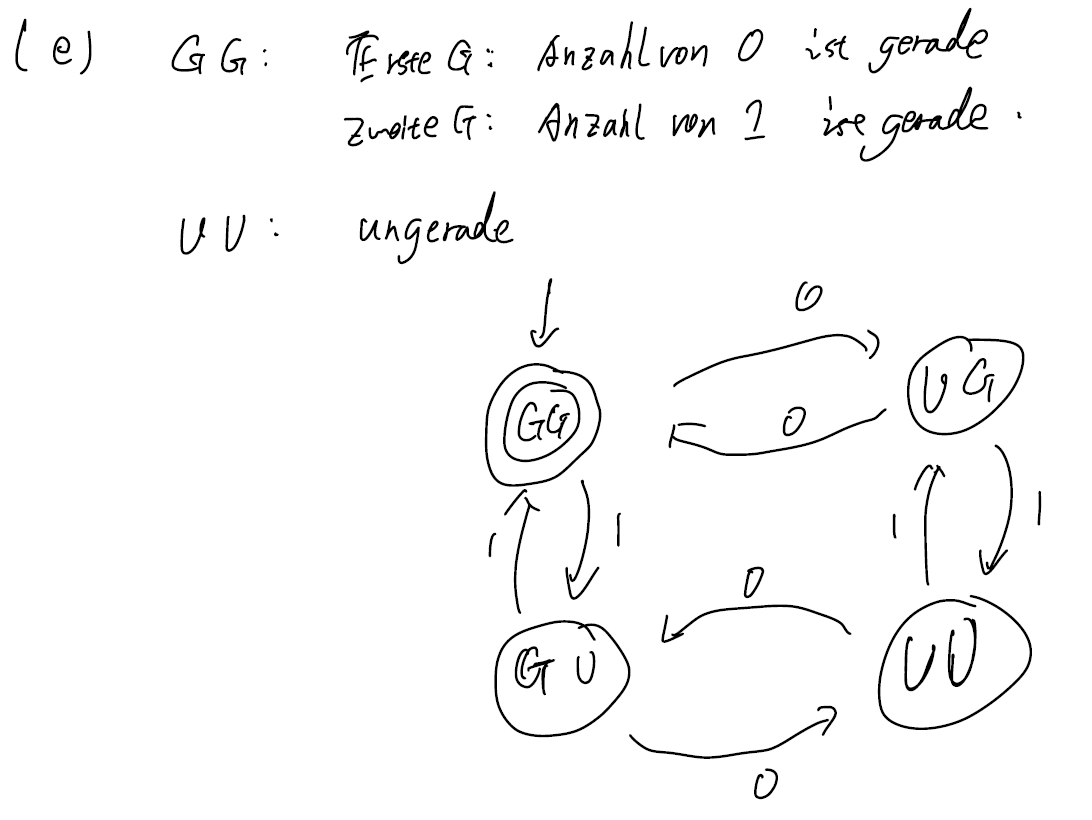 (e) GG: Erste G: Anzahl von 0 ist gerade
Zweite G: Anzahl von 1 ist gerade.
UU: ungerade
0
GG
UG
0
1
1
1
1
0
GU
UU
0